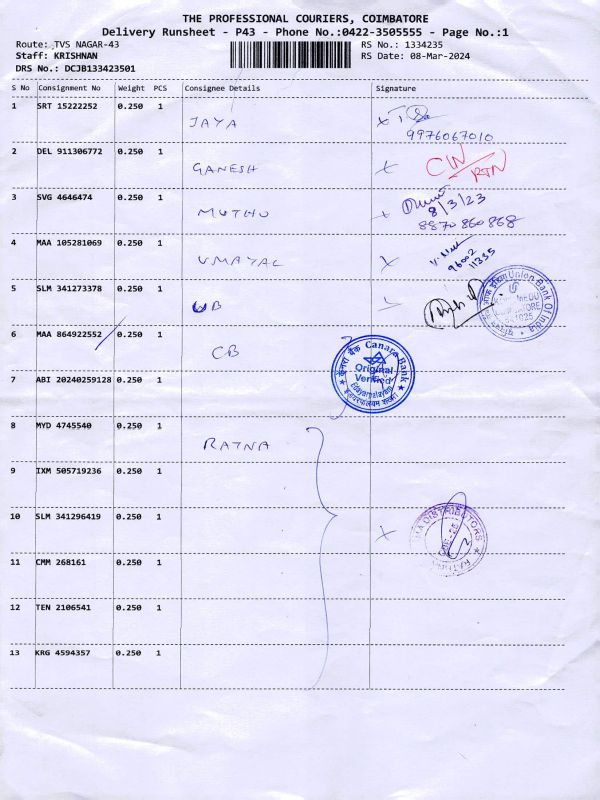 THE PROFESSIONAL COURIERS, COIMBATORE
Delivery Runsheet - P43 - Phone No.:0422-3505555 - Page No.:1
Route: TVS NAGAR-43 RS No.: 1334235
Staff: KRISHNAN RS Date: 08-Mar-2024
DRS No.: DCJB133423501
S No Consignment No Weight PCS Consignee Details Signature
1 SRT 15222252 0.250 1 JAYA
9976067010
2 DEL 911306772 0.250 1 GANESH
3 SVG 4646474 0.250 1 MUTHU 8/3/23
8870860868
4 MAA 105281069 0.250 1 UMAYAL 96002
11335
5 SLM 341273378 0.250 1 UB Union Bank Of India
6 MAA 864922552 0.250 1 CB केनरा बैंक Canara Bank
Original
Verified
7 ABI 20240259128 0.250 1
8 MYD 4745540 0.250 1 RATNA
9 IXM 505719236 0.250 1
10 SLM 341296419 0.250 1 DISTRIBUTORS
11 CMM 268161 0.250 1
12 TEN 2106541 0.250 1
13 KRG 4594357 0.250 1